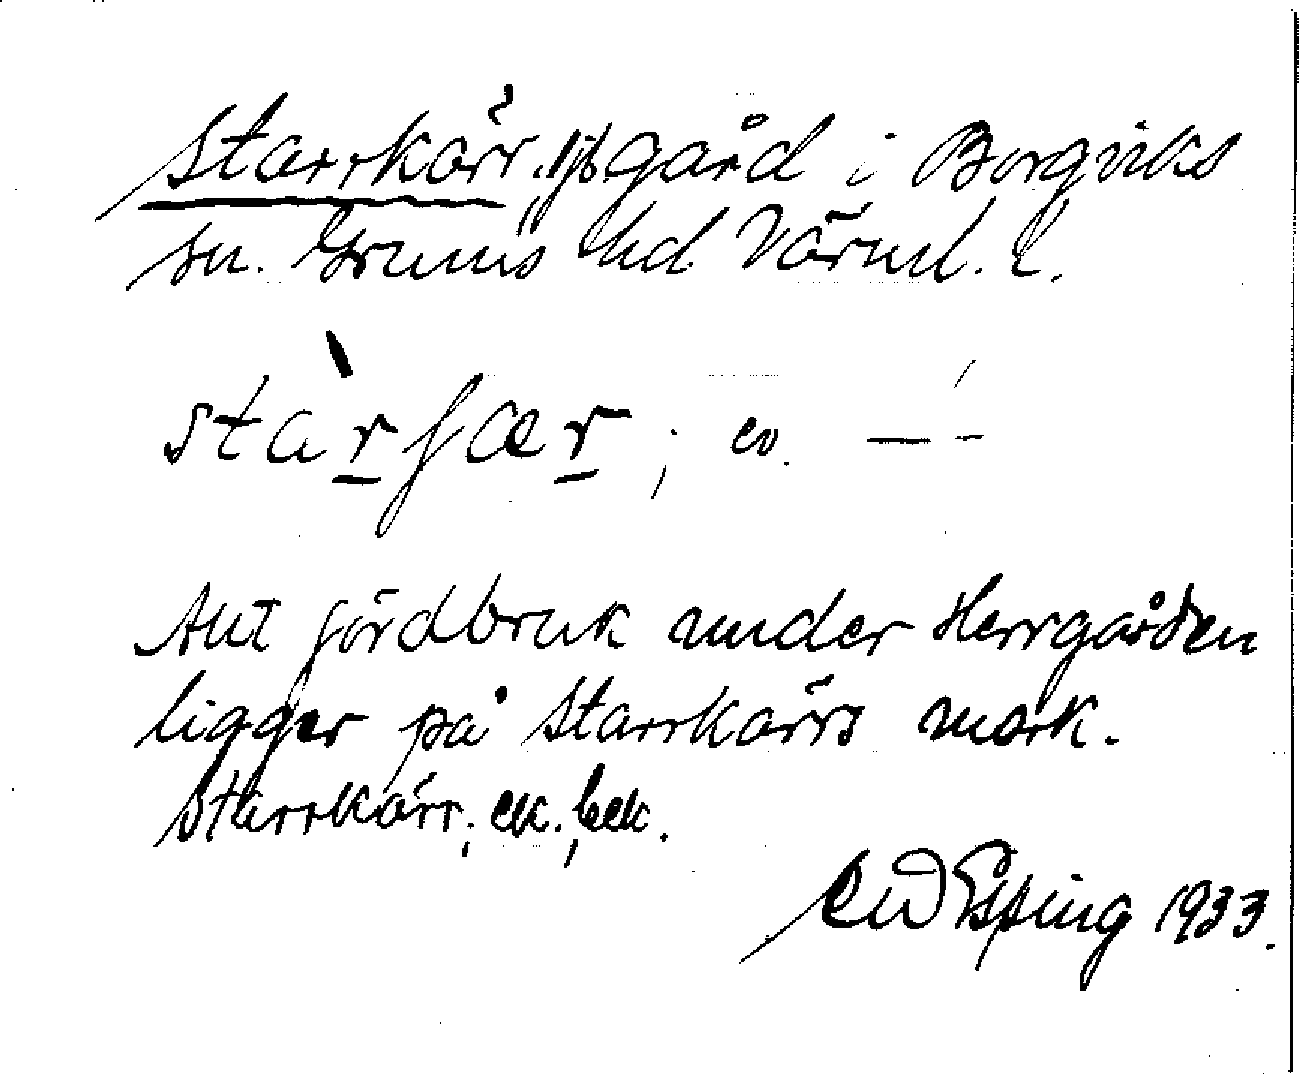 Starrkärr, gård i Borgviks
sn. Grums hd Värml. l.
stàrʃær; ev. — ´-
Allt jordbruk under Herrgården
ligger på Starrkärrs mark.
Starrkärr, ek., bek.
Esping 1933.